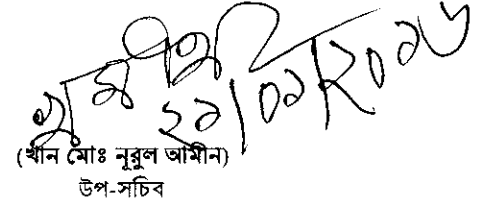 ২১/০১/২০১৬
(খান মোঃ নূরুল আমীন)
উপ-সচিব